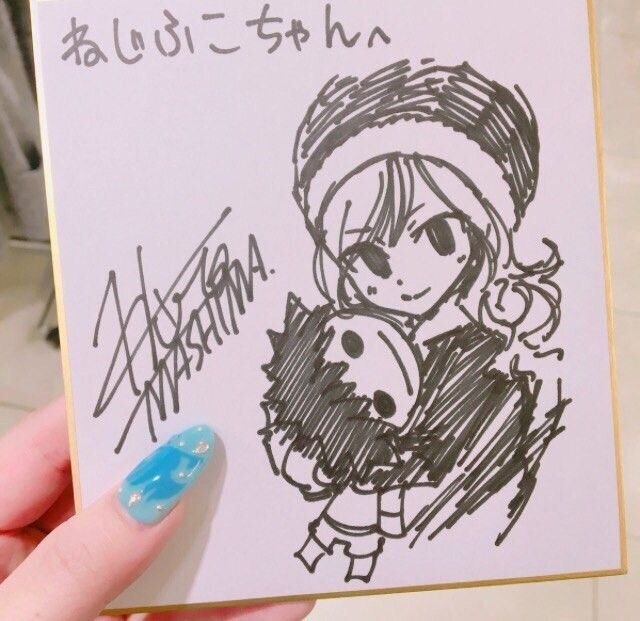 ねじふこちゃんへ
HIRO
MASHIMA.